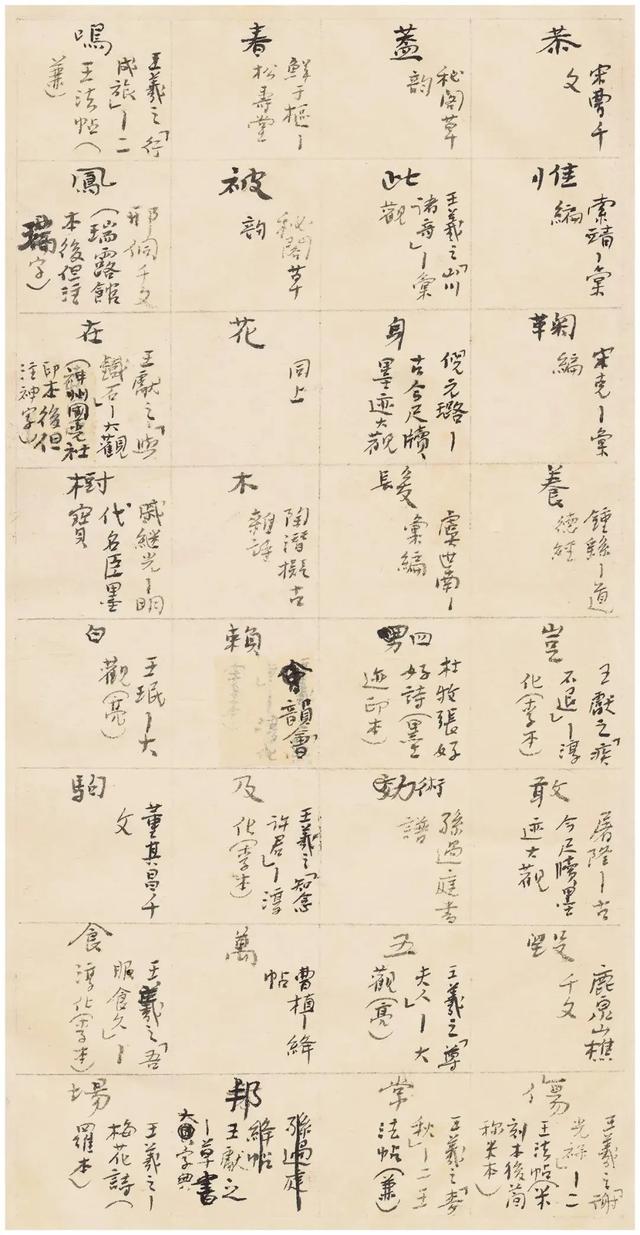 恭
宋曹千
文
惟
索靖〡彙
編
鞠
宋克〡彙
編
養
鍾繇〡道
德經
豈
王獻之「疾
不退」〡淳
化（李本）
敢
屠隆〡古
今尺牘墨
迹大觀
毀
鹿泉山樵
千文
傷
王羲之「謝
光祿」〡二
王法帖（米
刻本後簡
稱米本）
蓋
秘閣草
韵
此
王羲之「山川
諸奇」〡彙
觀
身
倪元璐〡
古今尺牘
墨迹大觀
髮
虞世南〡
彙編
四
杜牧張好
好詩（墨
迹印本）
術
孫過庭書
譜
五
王羲之「尊
夫人」〡大
觀（亮）
常
王羲之「麥
秋」〡二王
法帖（兼）
春
鮮于樞〡
松壽堂
被
秘閣草
韵
花
同上
木
陶潛擬古
雜詩
賴
韻會
及
王羲之「知念
許君」〡淳
化（李本）
萬
曹植〡絳
帖
邦
孫過庭
絳帖
王獻之
〡草書
大字典
鳴
王羲之「行
成旅」〡二
王法帖（
兼）
鳳
邢侗千文
（瑞露館
本後但注
瑞字）
在
王獻之「與
鐵石」〡大觀
（神州國光社
印本後但
注神字）
樹
戚繼光〡明
代名臣墨
寶
白
王珉〡大
觀（亮）
駒
董其昌千
文
食
王羲之「吾
服食久」〡
淳化（李本）
場
王羲之〡
梅花詩（
羅本）